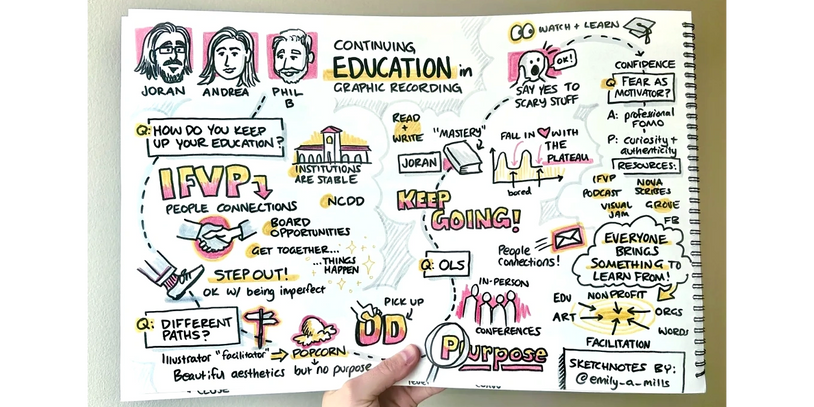 CONTINUING
EDUCATION in
GRAPHIC RECORDING
JORAN
ANDREA
PHIL
B
Q: HOW DO YOU KEEP
UP YOUR EDUCATION?
IFVP
PEOPLE CONNECTIONS
INSTITUTIONS
ARE STABLE
NCDD
BOARD
OPPORTUNITIES
GET TOGETHER...
...THINGS
HAPPEN
STEP OUT!
OK W/ being imperfect
Q: DIFFERENT
PATHS?
Illustrator "Facilitator" → POPCORN
Beautiful aesthetics but no purpose
PICK UP
OD
WATCH + LEARN
OK!
SAY YES TO
SCARY STUFF
READ
+
WRITE
"MASTERY"
JORAN
FALL IN ♥ WITH
THE
PLATEAU
bored
KEEP
GOING!
People
Connections!
Q: OLS
IN-PERSON
CONFERENCES
Purpose
CONFIDENCE
Q FEAR AS
MOTIVATOR?
A: professional
FOMO
P: curiosity +
authenticity
RESOURCES:
IFVP
PODCAST
NOVA
SCRIBES
VISUAL
JAM
GROVE
FB
EVERYONE
BRINGS
SOMETHING TO
LEARN FROM!
EDU
NONPROFIT
ORGS
ART
WORDS
FACILITATION
SKETCHNOTES BY:
@emily_a_mills